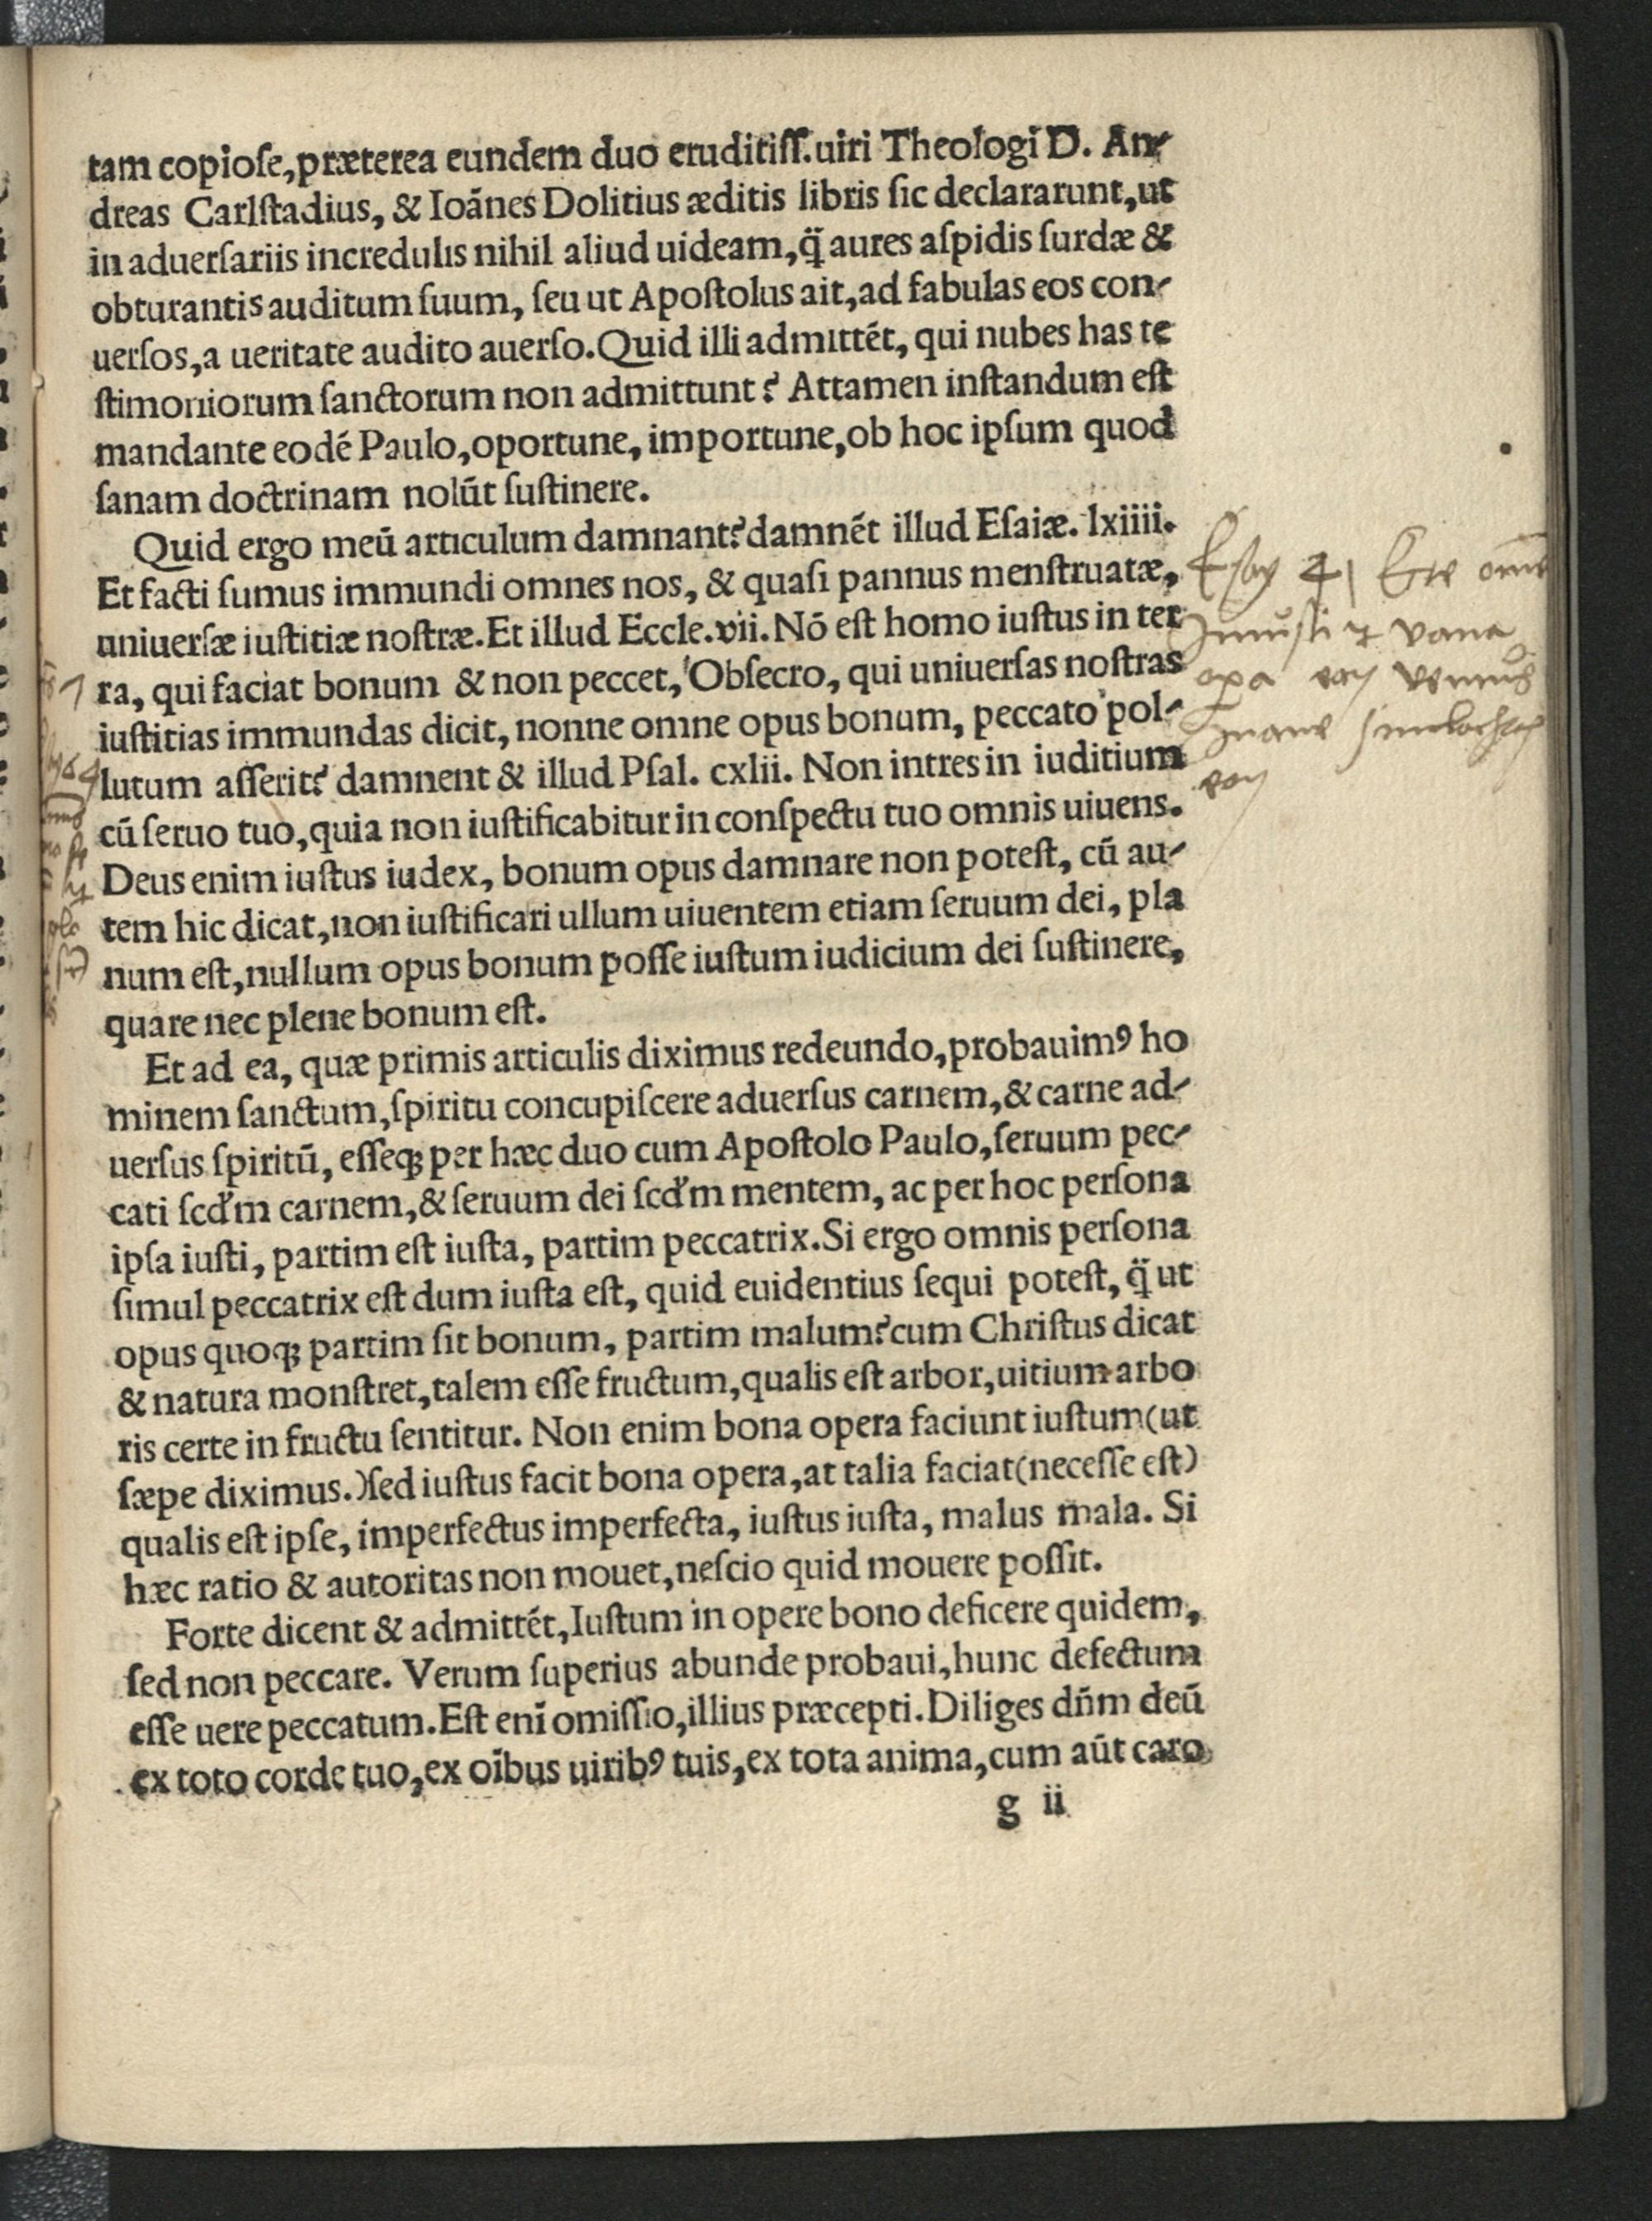 tam copioſe, præterea eundem duo eruditiſſ. uiri Theologi D. An-
dreas Carlſtadius, & Ioānes Dolitius æditis libris ſic declararunt, ut
in aduerſariis incredulis nihil aliud uideam, q̃ aures aſpidis ſurdæ &
obturantis auditum ſuum, ſeu ut Apoſtolus ait, ad fabulas eos con-
uerſos, a ueritate audito auerſo. Quid illi admittēt, qui nubes has te
ſtimoniorum ſanctorum non admittunt? Attamen inſtandum eſt
mandante eodē Paulo, oportune, importune, ob hoc ipſum quod
ſanam doctrinam nolūt ſuſtinere.
Quid ergo meū articulum damnant? damnēt illud Eſaiæ. lxiiii.
Et facti ſumus immundi omnes nos, & quaſi pannus menſtruatæ,
uniuerſæ iuſtitiæ noſtræ. Et illud Eccle. vii. Nō eſt homo iuſtus in ter
ra, qui faciat bonum & non peccet, Obſecro, qui uniuerſas noſtras
iuſtitias immundas dicit, nonne omne opus bonum, peccato pol-
lutum aſſerit? damnent & illud Pſal. cxlii. Non intres in iuditium
cū ſeruo tuo, quia non iuſtificabitur in conſpectu tuo omnis uiuens.
Deus enim iuſtus iudex, bonum opus damnare non poteſt, cū au-
tem hic dicat, non iuſtificari ullum uiuentem etiam ſeruum dei, pla
num eſt, nullum opus bonum poſſe iuſtum iudicium dei ſuſtinere,
quare nec plene bonum eſt.
Et ad ea, quæ primis articulis diximus redeundo, probauimꝰ ho
minem ſanctum, ſpiritu concupiſcere aduerſus carnem, & carne ad-
uerſus ſpiritū, eſſeqꝫ per hæc duo cum Apoſtolo Paulo, ſeruum pec-
cati ſcd'm carnem, & ſeruum dei ſcd'm mentem, ac per hoc perſona
ipſa iuſti, partim eſt iuſta, partim peccatrix. Si ergo omnis perſona
ſimul peccatrix eſt dum iuſta eſt, quid euidentius ſequi poteſt, q̃ ut
opus quoqꝫ partim ſit bonum, partim malum? cum Chriſtus dicat
& natura monſtret, talem eſſe fructum, qualis eſt arbor, uitium arbo
ris certe in fructu ſentitur. Non enim bona opera faciunt iuſtum (ut
ſæpe diximus.) ſed iuſtus facit bona opera, at talia faciat (neceſſe eſt)
qualis eſt ipſe, imperfectus imperfecta, iuſtus iuſta, malus mala. Si
hæc ratio & autoritas non mouet, neſcio quid mouere poſſit.
Forte dicent & admittēt, Iuſtum in opere bono deficere quidem,
ſed non peccare. Verum ſuperius abunde probaui, hunc defectum
eſſe uere peccatum. Eſt enī omiſſio, illius præcepti. Diliges dñm deū
ex toto corde tuo, ex oībus uiribꝰ tuis, ex tota anima, cum aūt caro
g ii
Esay 41 Ecce omēs
iniusti et vana
opa eoꝝ ventus
inane simulachra
eoꝝ